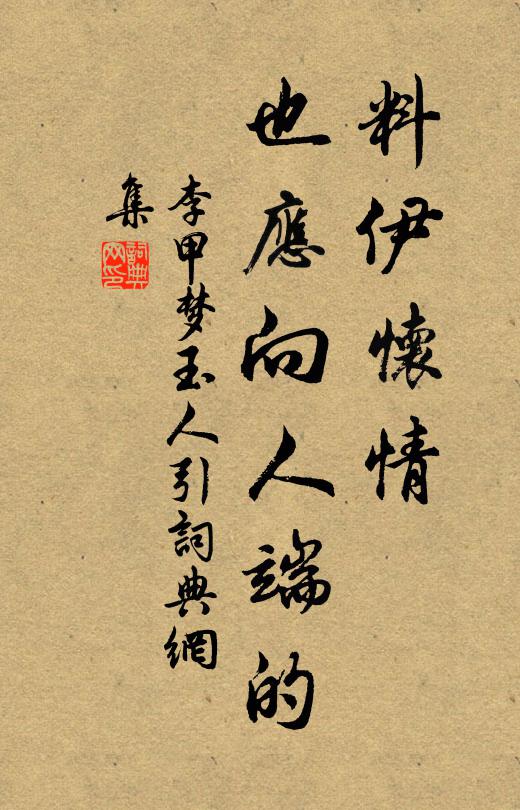 料伊懷情
也應向人端的
李甲梦玉人引詞典網
集
詞典
网印